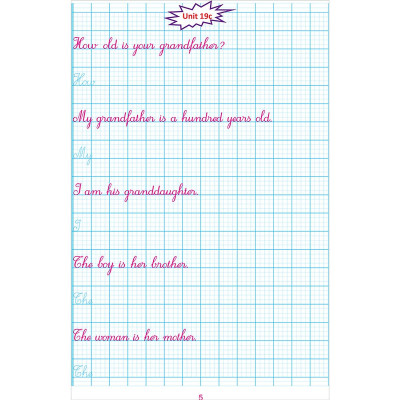 Unit 19c
How old is your grandfather?
How
My grandfather is a hundred years old.
My
I am his granddaughter.
I
The boy is her brother.
The
The woman is her mother.
The
5